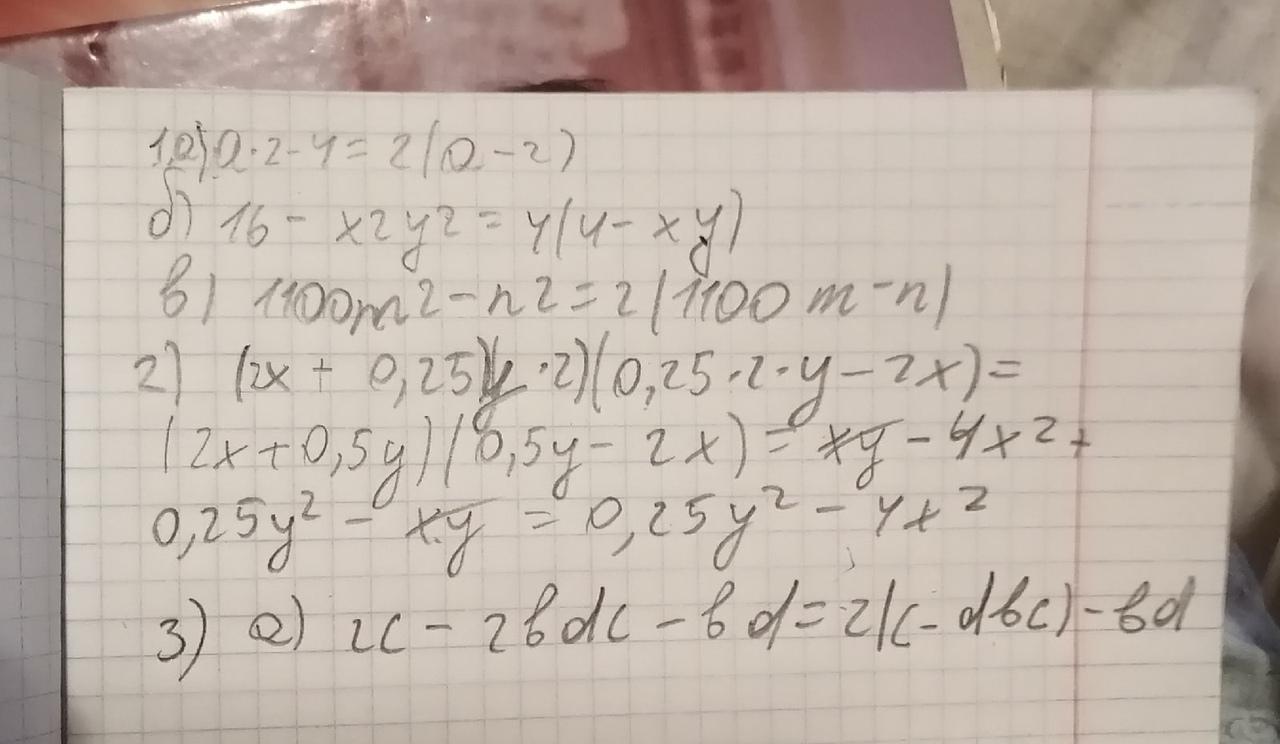 1.a) a·2-4=2(a-2)
б) 16- x2y2=4(4-xy)
в) 1100m2-n2=2(1100m-n)
2) (2x+0,25y·2)(0,25·2·y-2x)=
(2x+0,5y)(0,5y-2x)=xy-4x²+
0,25y²-xy=0,25y²-4x²
3) a) 2c-2bdc-bd=2(c-dbc)-bd